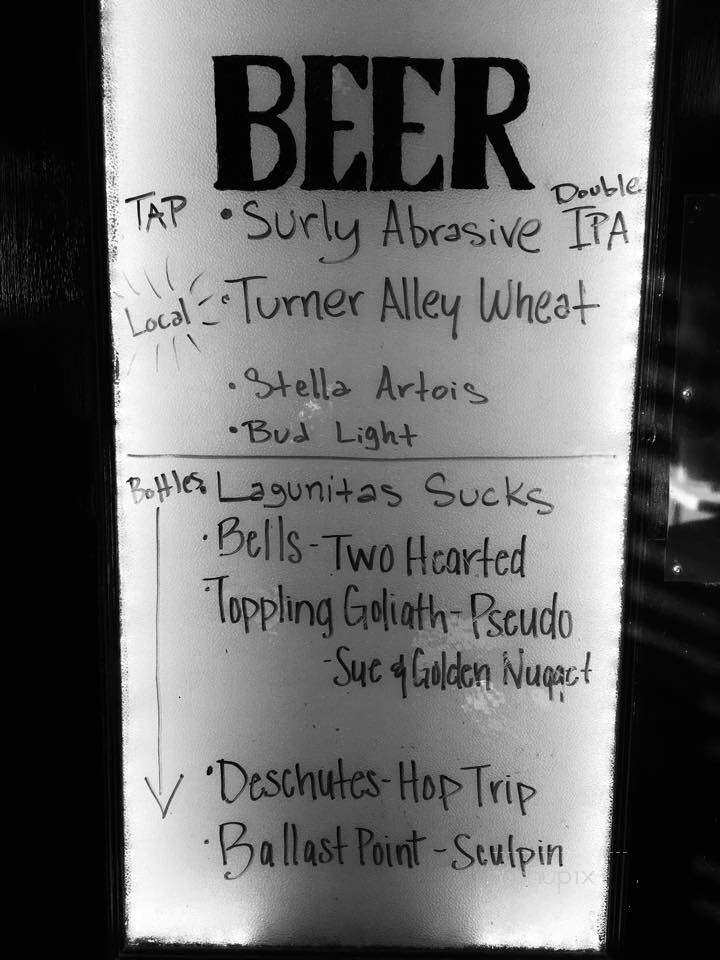 BEER
TAP • Surly Abrasive Double IPA
Local • Turner Alley Wheat
• Stella Artois
• Bud Light
Bottles • Lagunitas Sucks
• Bells - Two Hearted
• Toppling Goliath - Pseudo
- Sue & Golden Nugget
• Deschutes - Hop Trip
• Ballast Point - Sculpin